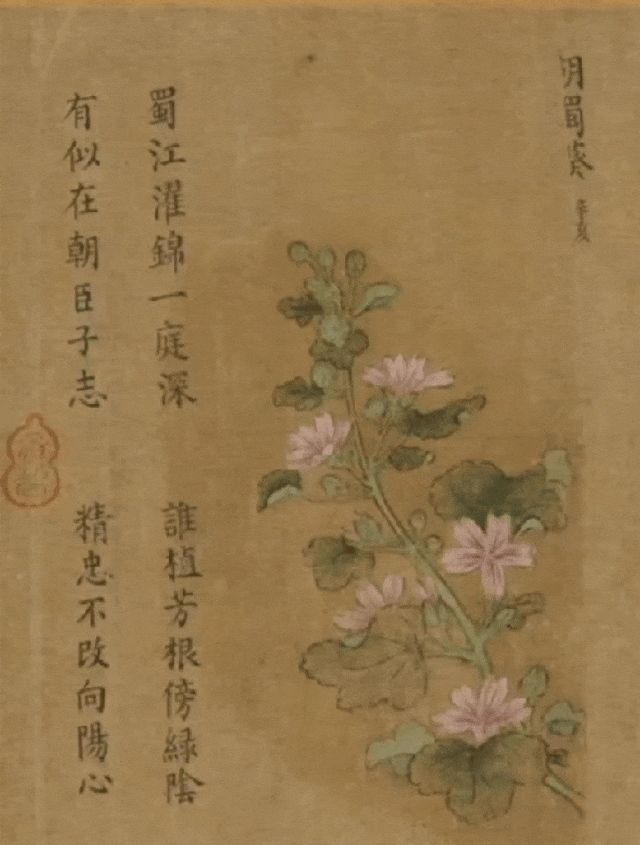 明蜀葵 辛亥
蜀江濯錦一庭深 誰植芳根傍緑陰
有似在朝臣子志 精忠不改向陽心